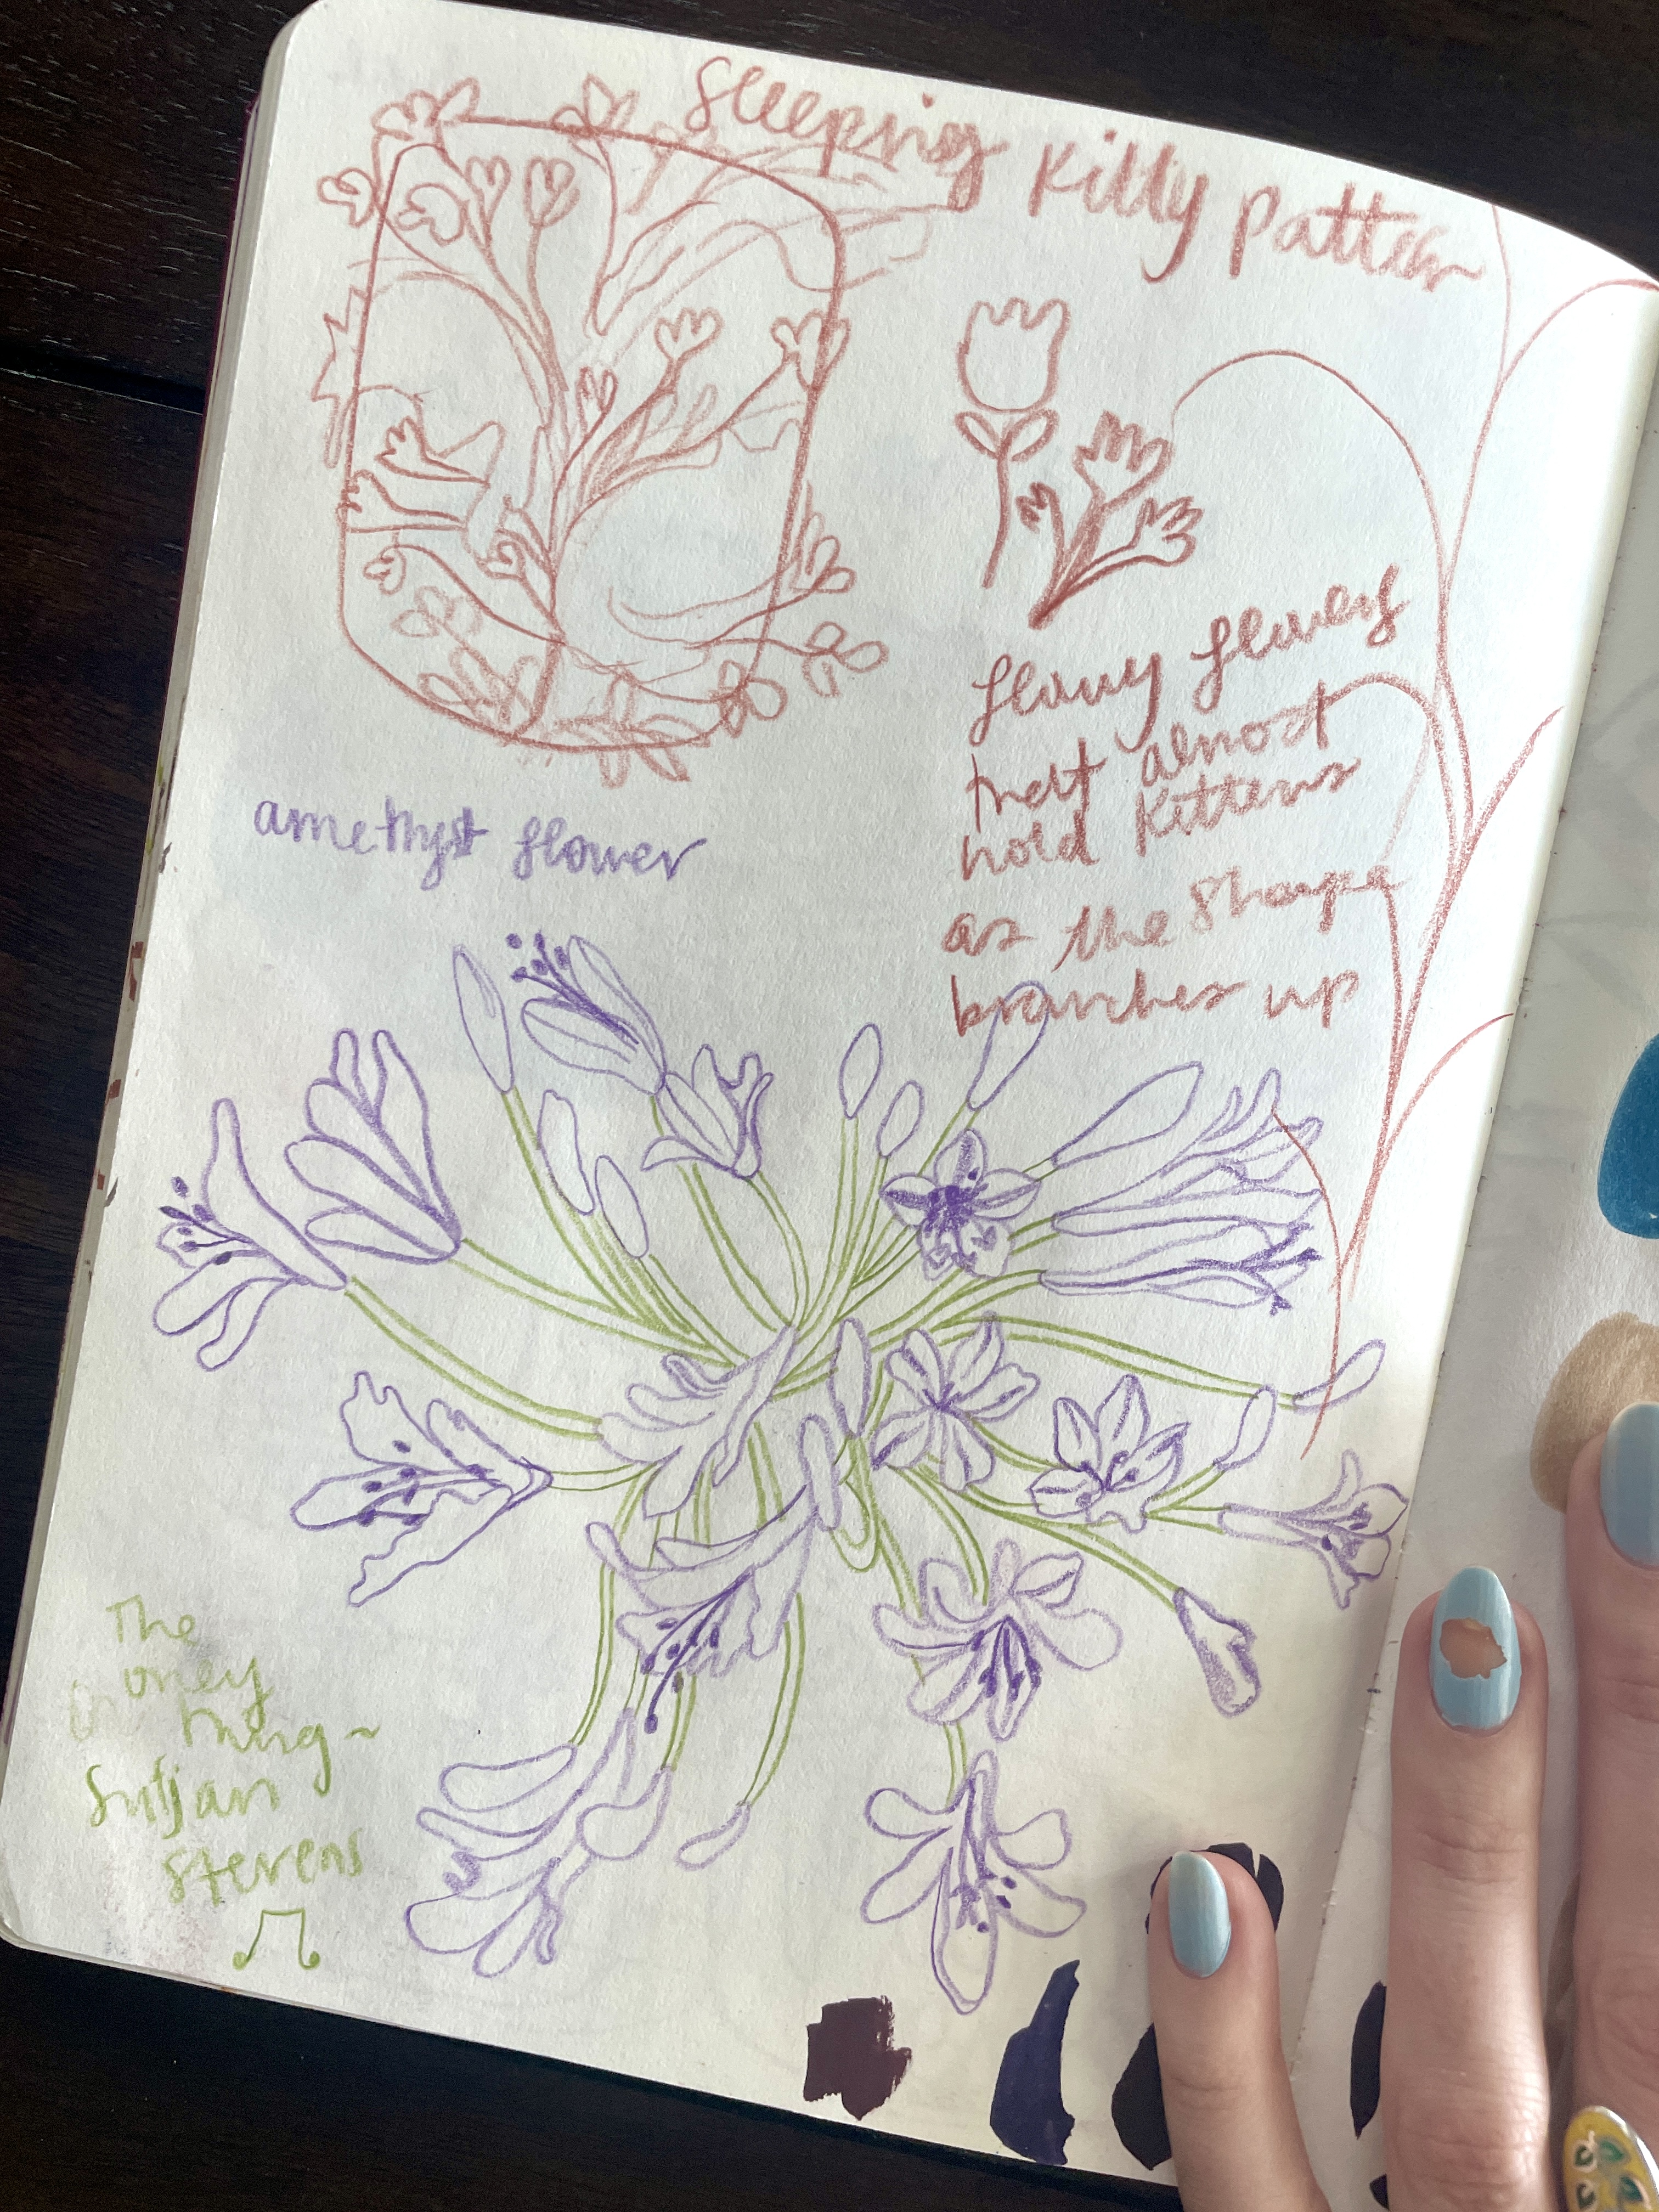 Sleeping Kitty Pattern
flowy flowers
that almost
hold Kittens
as the shape
branches up
amethyst flower
The
oney
thing~
Sufjan
Stevens